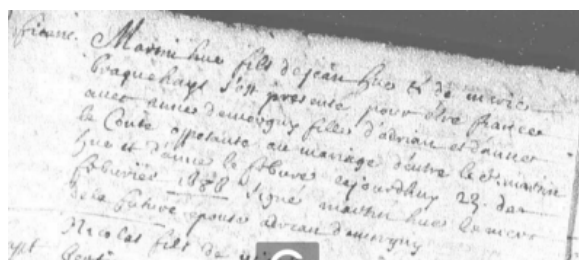 Martin hue fils de jean hue & de marie
braquehays s'est presente pour être fiancee
avec anne demorgny fille d'adrian et d'annet
le Conte opposante au mariage d'entre le st martin
hue et d'anne le febure aujourdhuy 23. da
feburier 1688 signé martin hue
de la future epouse adrian demorgny
Nicolas fils de